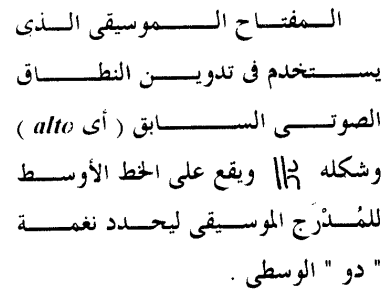 المفتاح الموسيقى الذى
يستخدم فى تدوين النطاق
الصوتى السابق ( أى alto )
وشكله ويقع على الخط الأوسط
للمُدْرَج الموسيقى ليحدد نغمة
" دو " الوسطى .